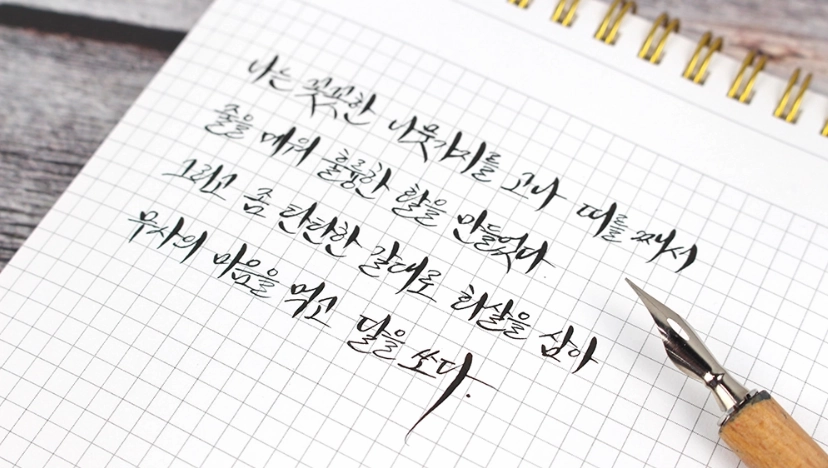 나는 꼿꼿한 나뭇가지를 고나 띠를 째서
줄을 메워 훌륭한 활을 만들었다.
그리고 좀 탄탄한 갈대로 화살을 삼아
무사의 마음을 먹고 달을 쏘다.